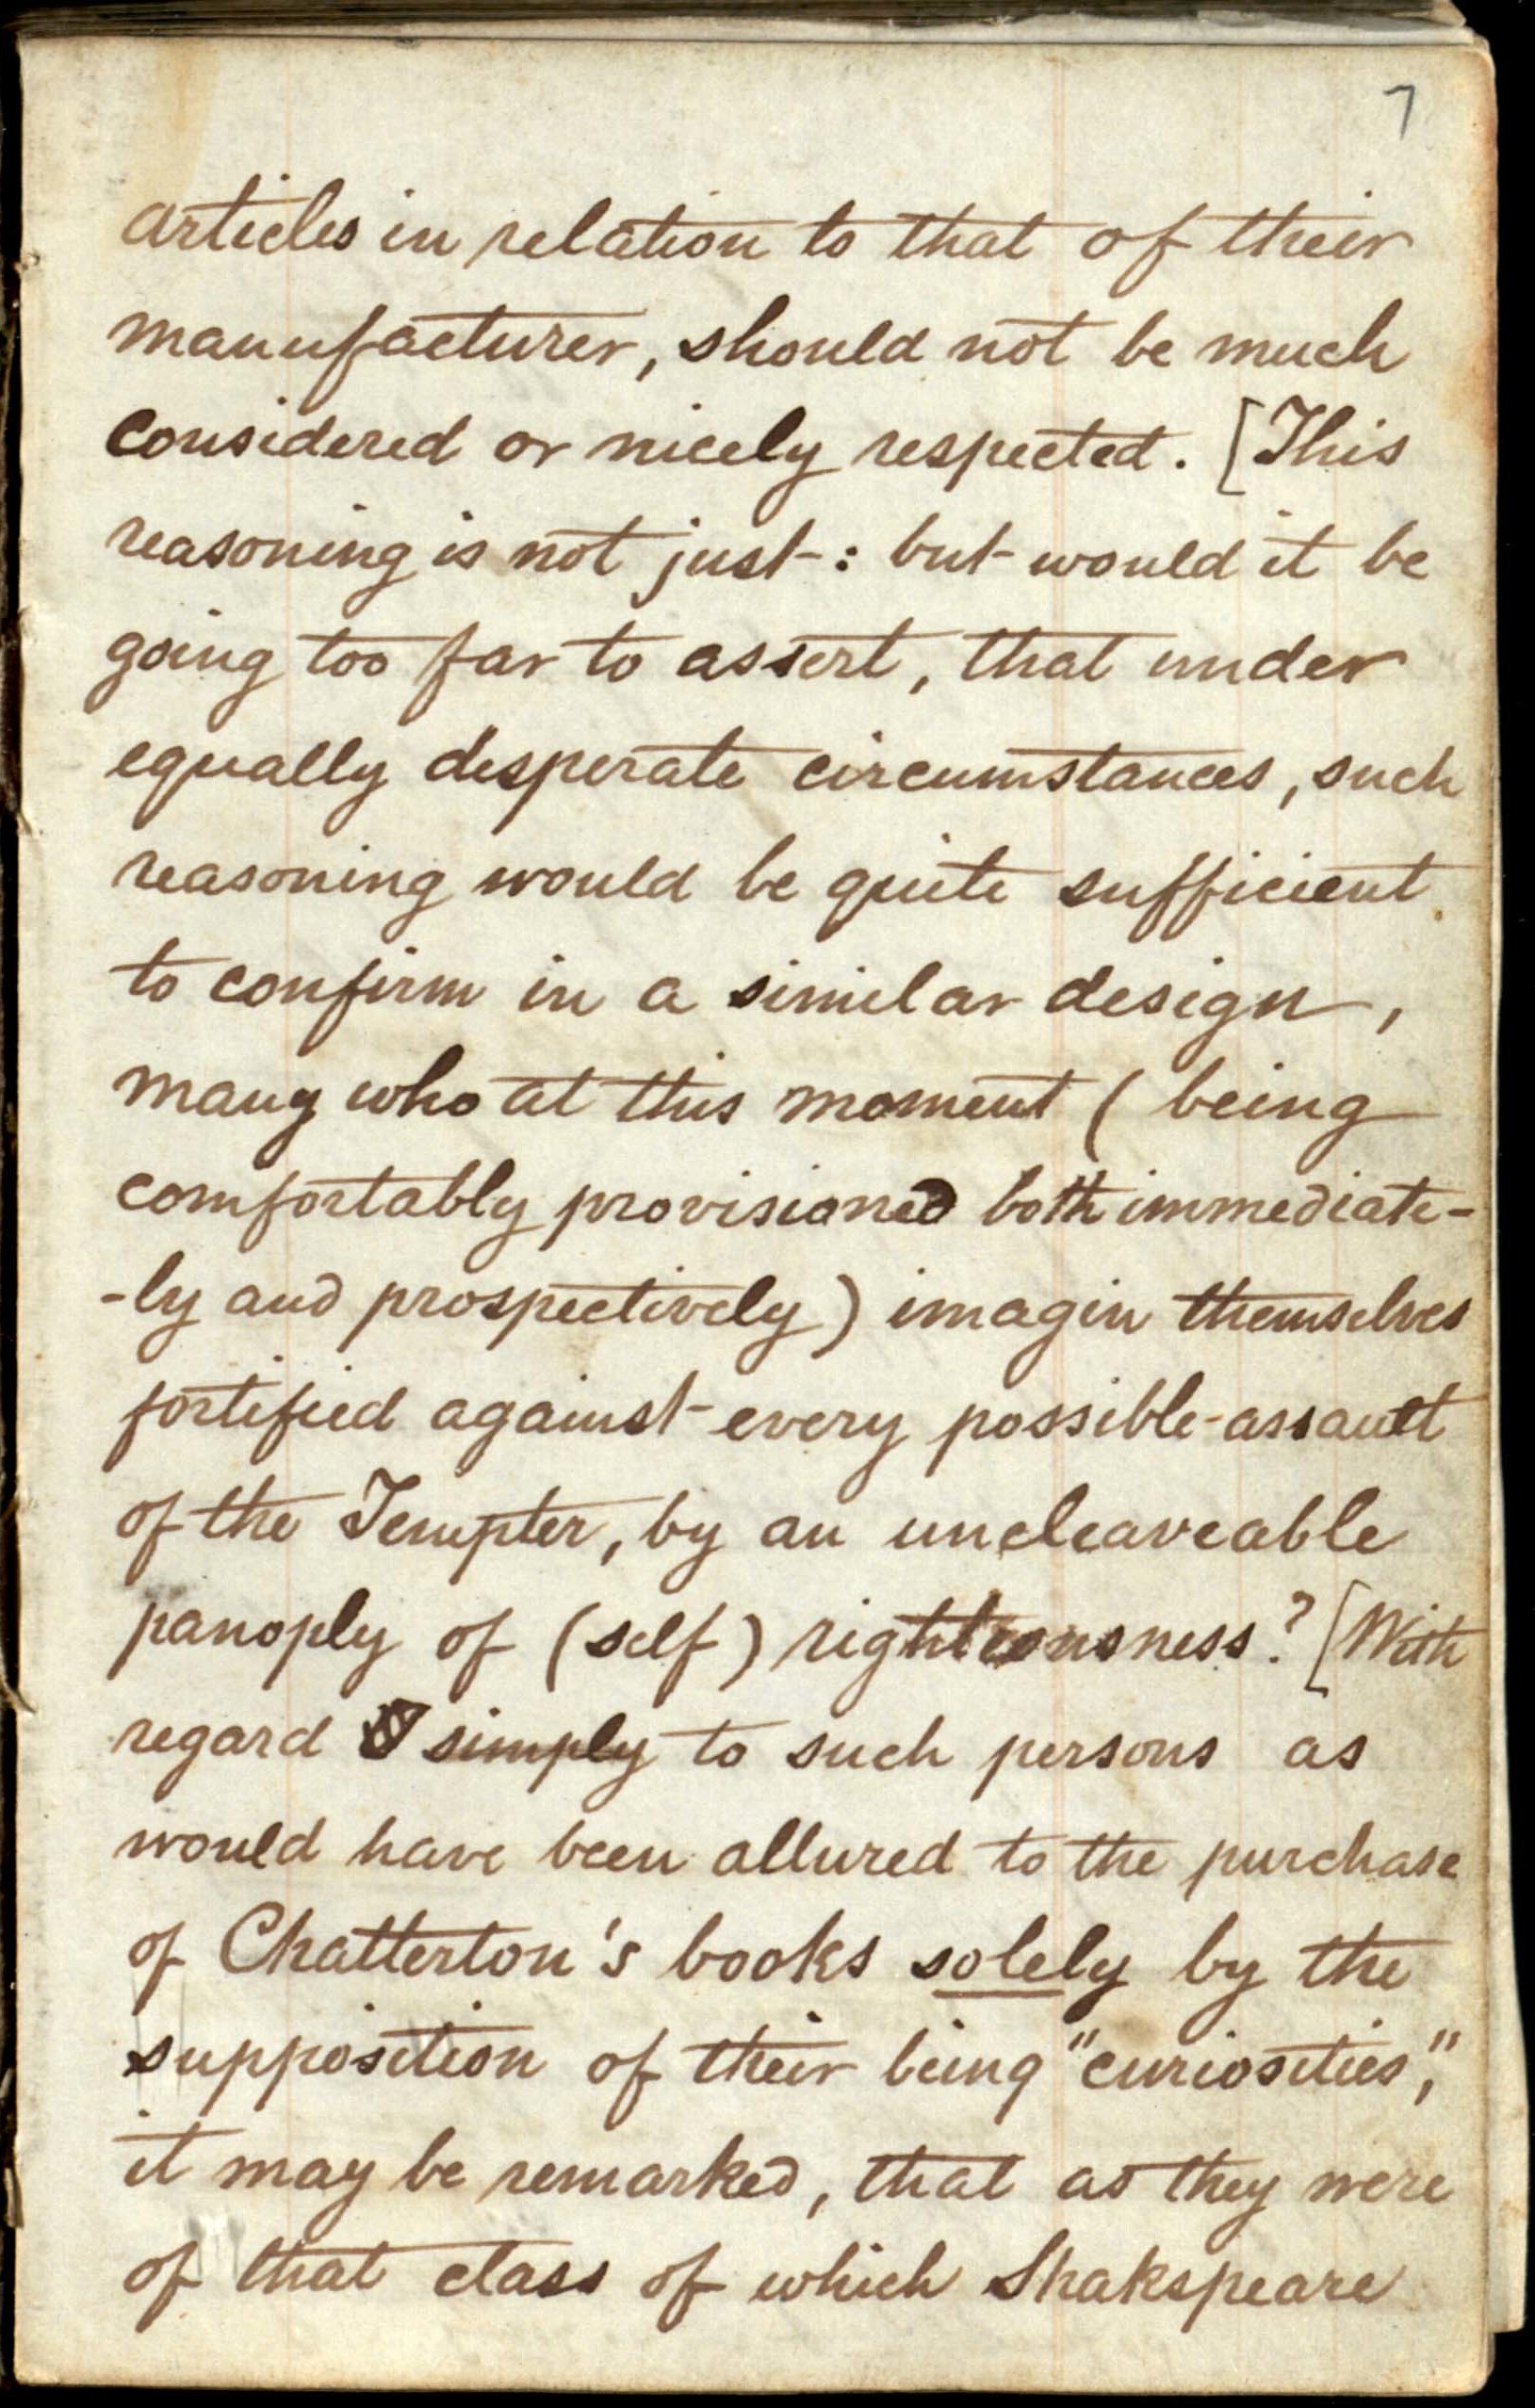 7
articles in relation to that of their
manufacturer, should not be much
considered or nicely respected. [This
reasoning is not just: but would it be
going too far to assert, that under
equally desperate circumstances, such
reasoning would be quite sufficient
to confirm in a similar design,
many who at this moment (being
comfortably provisioned both immediate-
-ly and prospectively) imagin themselves
fortified against every possible assault
of the Tempter, by an uncleaveable
panoply of (self) righteousness? [With
regard simply to such persons as
would have been allured to the purchase
of Chatterton's books solely by the
supposition of their being "curiosities,"
it may be remarked, that as they were
of that class of which Shakspeare